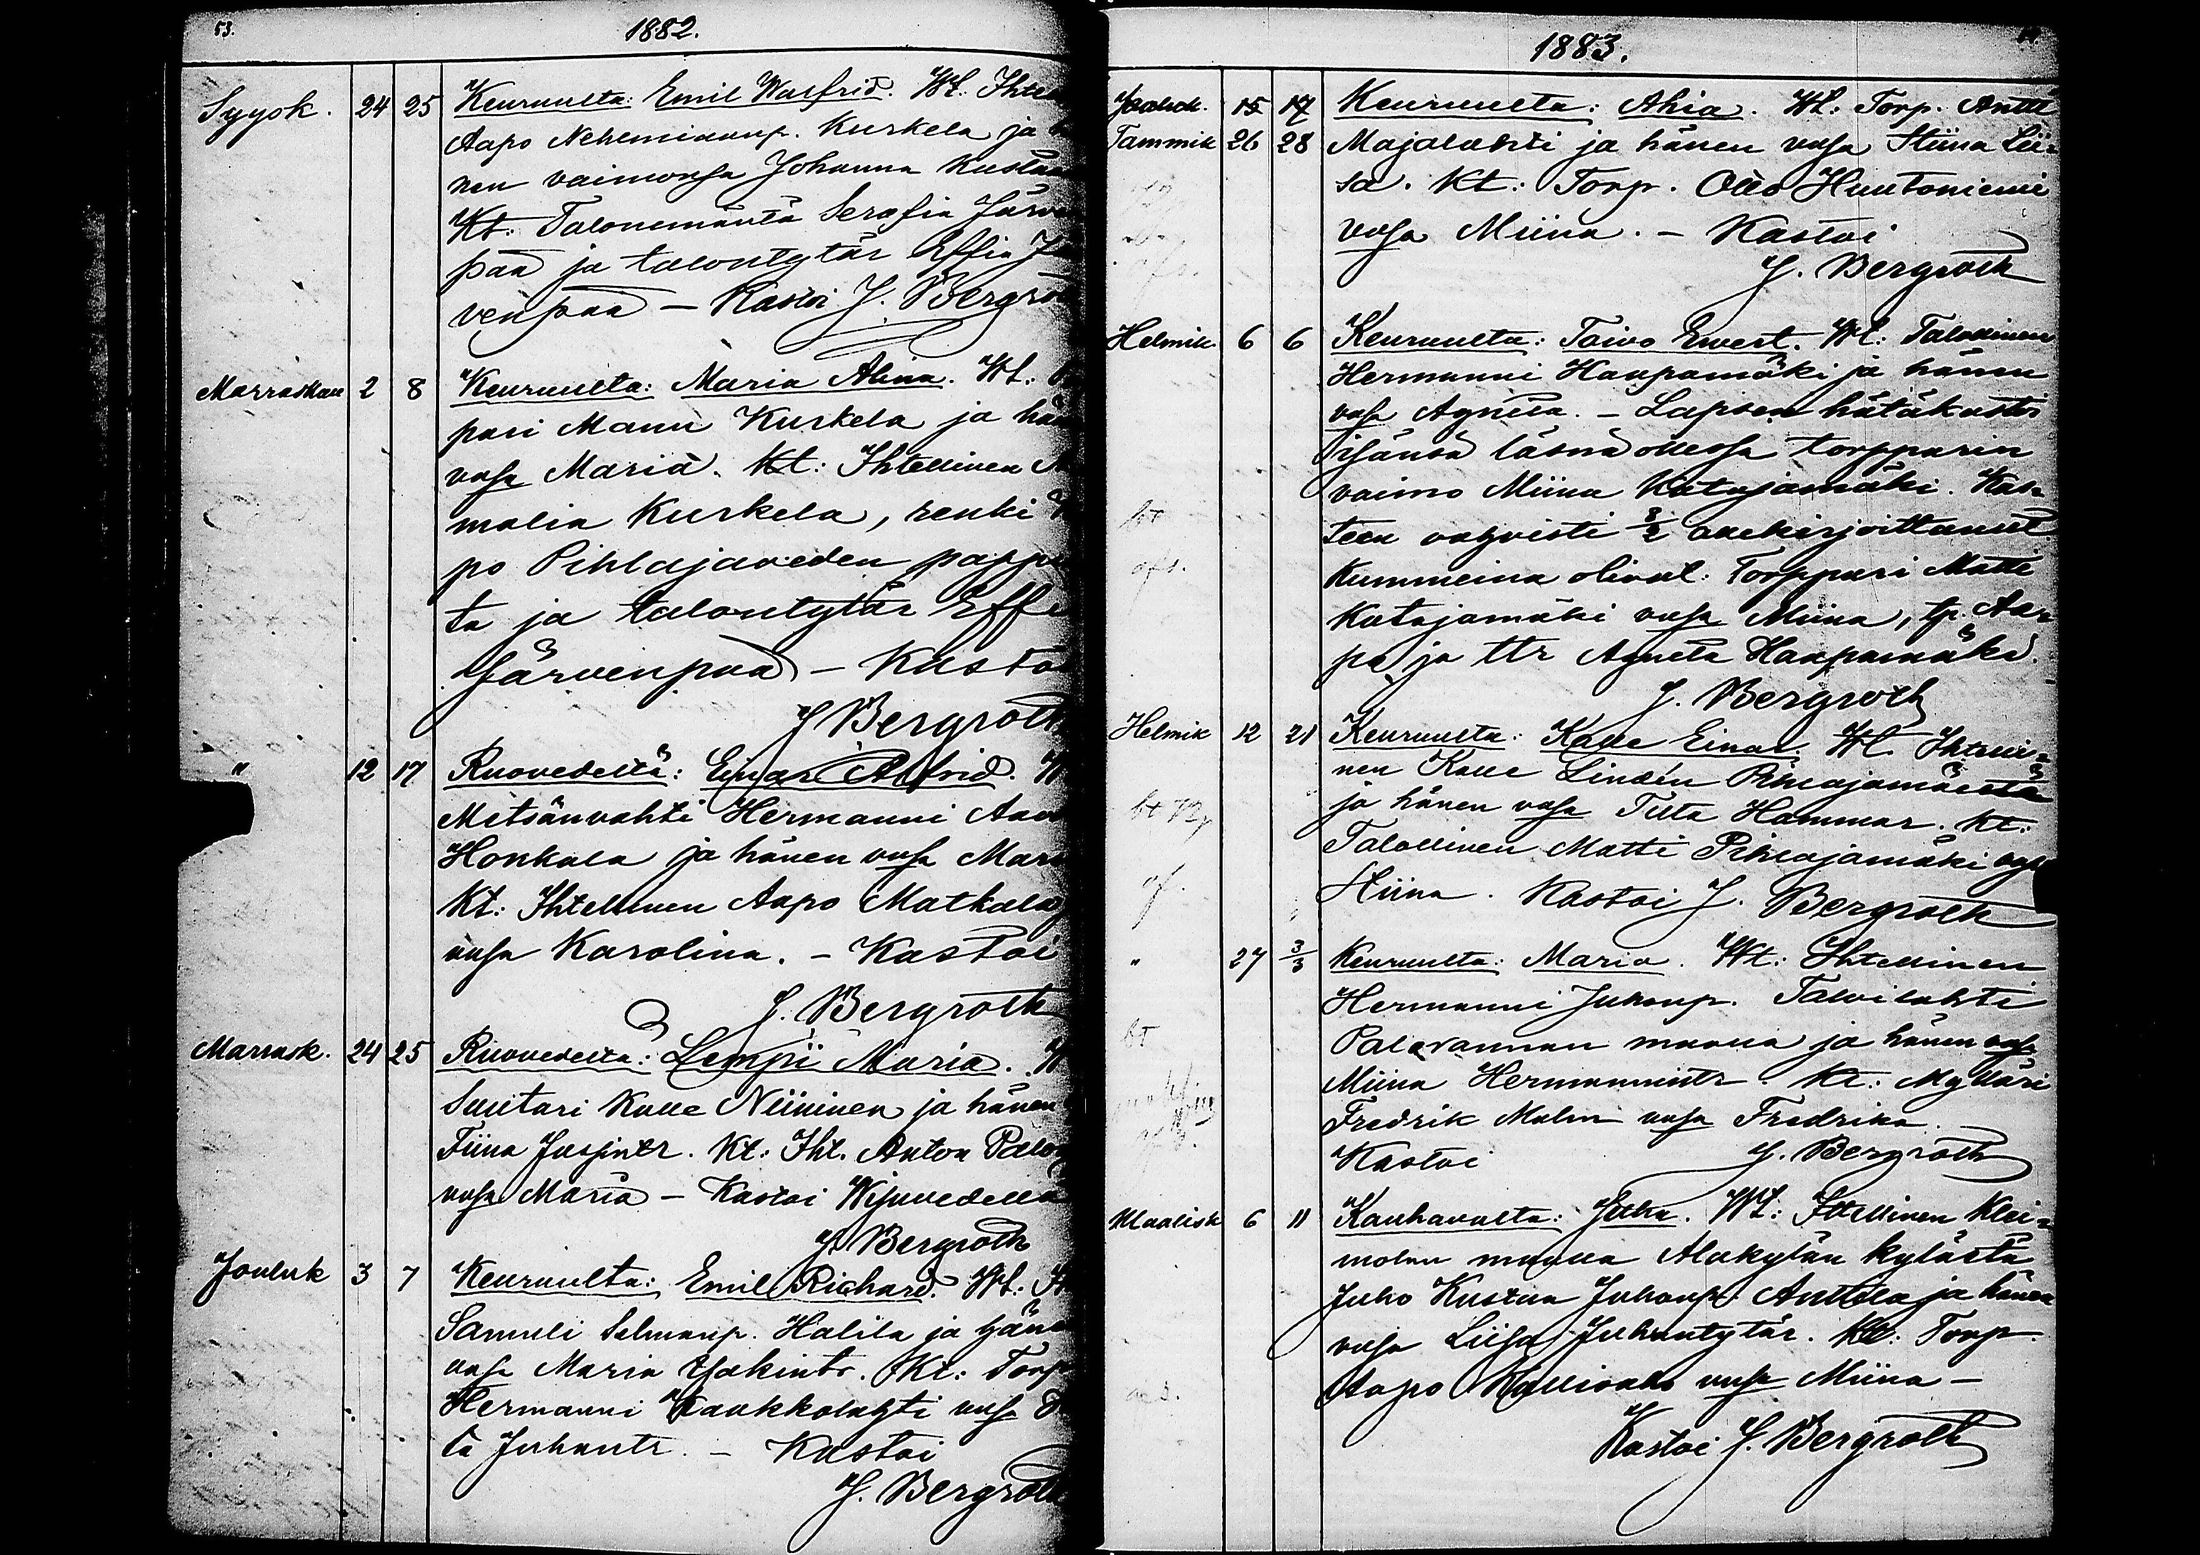 53.
1882.
Syysk. 24 25 Keuruulta: Emil Walfrid. Wt: Ihtel
Aapo Nehemianp. Kurkela ja
nen vaimonsa Johanna Kustaa
Kt: Talonemäntä Serafia Järve
pää ja talontytär Effia Jä
venpää — Kastoi J. Bergro
Marraskuu 2 8 Keuruulta: Maria Alina. Wt:
pari Manu Kurkela ja hä
vsa Maria. Kt: Ihtellinen A
malia Kurkela, renki
po Pihlajaveden pappi
la ja talontytär Effi
Järvenpää — Kastoi
J Bergroth
" 12 17 Ruovedeltä: Einar Alfrid.
Metsänvahti Hermanni Aa
Honkala ja hänen vsa Mari
Kt: Ihtellinen Aapo Matkala
vsa Karolina. — Kastoi
J. Bergroth
Marrask. 24 25 Ruovedeltä: Lempii Maria.
Suutari Kalle Niininen ja hänen
Tiina Juspintr. Kt: Iht. Anton Palo
vsa Maria — Kastoi Wijavedellä
J. Bergroth
Jouluk 3 7 Keuruulta: Emil Richard. Wt:
Samuli Salmanp. Halila ja hän
vsa Maria Isakintr. Kt: Torp
Hermanni Kaukkolahti vsa
ta Juhantr. — Kastoi
J. Bergroth
1883.
15 17 Keuruulta: Ahia. Wt: Torp. Antti
Tammik 26 28 Majalahti ja hänen vsa Stiina Lii-
sa. Kt: Torp. Otto Huutoniemi
vsa Miina. — Kastoi
J. Bergroth
Helmik 6 6 Keuruulta: Toivo Ewert. Wt: Talollinen
Hermanni Haapamäki ja hänen
vsa Agneta. — Lapsen hätäkastoi
isänsä läsnä ollessa torpparin
vaimo Miina Katajamäki. Kas-
teen vahvisti 8/2 allekirjoittanut.
Kummeina olivat: Torppari Matti
Katajamäki vsa Miina, tp. Aa-
po ja ttr Agneta Haapamäki.
J. Bergroth
Helmik 12 21 Keuruulta: Kalle Einar. Wt. Ihtelli-
nen Kalle Lindén Pihlajamäeltä
ja hänen vsa Tilta Hammar. Kt:
Talollinen Matti Pihlajamäki
Stiina. Kastoi J. Bergroth
" 27 3/3 Keuruulta: Maria. Wt: Ihtellinen
Hermanni Juhonp. Talvilahti
Palovannan maalla ja hänen vsa
Miina Hermannintr. Kt: Mylläri
Fredrik Malm vsa Fredrika.
Kastoi J. Bergroth
Maalisk 6 11 Kauhavalta: Juho. Wt: Itellinen Klei-
molan maalla Alakylän kylästä
Juho Kustaa Juhonp. Anttila ja hänen
vsa Liisa Juhantytär. Kt: Torp.
Aapo Kalliolahti vsa Miina —
Kastoi J. Bergroth